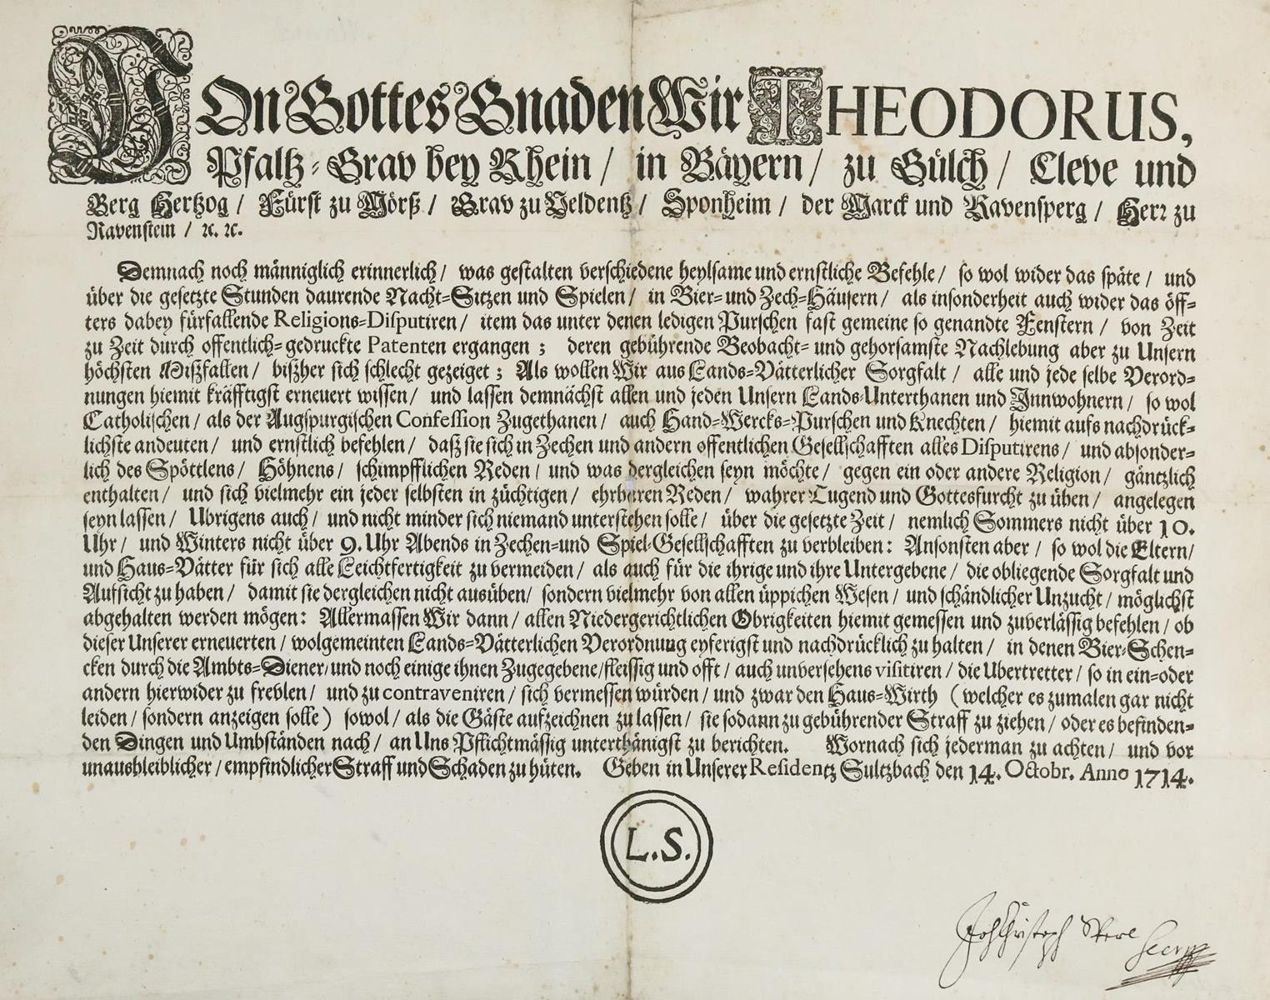 VOn Gottes Gnaden Wir THEODORUS,
Pfaltz-Grav bey Rhein / in Bäyern / zu Gülch / Cleve und
Berg Hertzog / Fürst zu Mörß / Grav zu Veldentz / Sponheim / der Marck und Ravensperg / Herr zu
Ravenstein / ꝛc. ꝛc.
Demnach noch männiglich erinnerlich / was gestalten verschiedene heylsame und ernstliche Befehle / so wol wider das späte / und
über die gesetzte Stunden daurende Nacht-Sitzen und Spielen / in Bier- und Zech-Häusern / als insonderheit auch wider das öff-
ters dabey fürfallende Religions-Disputiren / item das unter denen ledigen Purschen fast gemeine so genandte Fenstern / von Zeit
zu Zeit durch offentlich-gedruckte Patenten ergangen ; deren gebührende Beobacht- und gehorsamste Nachlebung aber zu Unsern
höchsten Mißfallen / bißher sich schlecht gezeiget ; Als wollen Wir aus Lands-Vätterlicher Sorgfalt / alle und jede selbe Verord-
nungen hiemit kräfftigst erneuert wissen / und lassen demnächst allen und jeden Unsern Lands-Unterthanen und Innwohnern / so wol
Catholischen / als der Augspurgischen Confession Zugethanen / auch Hand-Wercks-Purschen und Knechten / hiemit aufs nachdrück-
lichste andeuten / und ernstlich befehlen / daß sie sich in Zechen und andern offentlichen Gesellschafften alles Disputirens / und absonder-
lich des Spöttlens / Höhnens / schimpfflichen Reden / und was dergleichen seyn möchte / gegen ein oder andere Religion / gäntzlich
enthalten / und sich vielmehr ein jeder selbsten in züchtigen / ehrbaren Reden / wahrer Tugend und Gottesfurcht zu üben / angelegen
seyn lassen / Ubrigens auch / und nicht minder sich niemand unterstehen solle / über die gesetzte Zeit / nemlich Sommers nicht über 10.
Uhr / und Winters nicht über 9. Uhr Abends in Zechen- und Spiel-Gesellschafften zu verbleiben: Ansonsten aber / so wol die Eltern /
und Haus-Vätter für sich alle Leichtfertigkeit zu vermeiden / als auch für die ihrige und ihre Untergebene / die obliegende Sorgfalt und
Aufsicht zu haben / damit sie dergleichen nicht ausüben / sondern vielmehr von allen üppichen Wesen / und schändlicher Unzucht / möglichst
abgehalten werden mögen: Allermassen Wir dann / allen Niedergerichtlichen Obrigkeiten hiemit gemessen und zuverlässig befehlen / ob
dieser Unserer erneuerten / wolgemeinten Lands-Vätterlichen Verordnung eyferigst und nachdrücklich zu halten / in denen Bier-Schen-
cken durch die Ambts-Diener / und noch einige ihnen Zugegebene / fleissig und offt / auch unversehens visitiren / die Ubertretter / so in ein- oder
andern hierwider zu frevlen / und zu contraveniren / sich vermessen würden / und zwar den Haus-Wirth (welcher es zumalen gar nicht
leiden / sondern anzeigen solle) sowol / als die Gäste aufzeichnen zu lassen / sie sodann zu gebührender Straff zu ziehen / oder es befinden-
den Dingen und Umbständen nach / an Uns Pflichtmässig unterthänigst zu berichten. Wornach sich jederman zu achten / und vor
unausbleiblicher / empfindlicher Straff und Schaden zu hüten. Geben in Unserer Residentz Sultzbach den 14. Octobr. Anno 1714.
L.S.
Joh Christoph